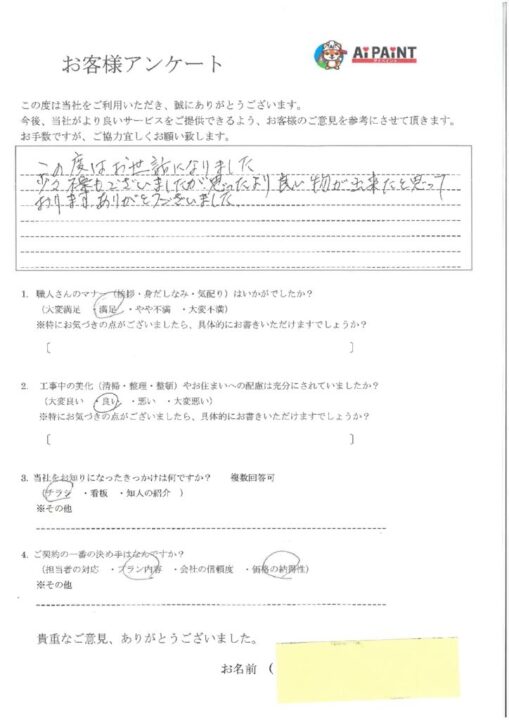 Ai PAiNT
アイペイント
お客様アンケート
この度は当社をご利用いただき、誠にありがとうございます。
今後、当社がより良いサービスをご提供できるよう、お客様のご意見を参考にさせて頂きます。
お手数ですが、ご協力宜しくお願い致します。
この度はお世話になりました
少々 もございましたが思ったより良い物が出来たと思って
おります。ありがとうございました
1. 職人さんのマナー（挨拶・身だしなみ・気配り）はいかがでしたか？
（大変満足 ・満足 ・やや不満 ・大変不満）
※特にお気づきの点がございましたら、具体的にお書きいただけますでしょうか？
〔 〕
2. 工事中の美化（清掃・整理・整頓）やお住まいへの配慮は充分にされていましたか？
（大変良い ・良い ・悪い ・大変悪い）
※特にお気づきの点がございましたら、具体的にお書きいただけますでしょうか？
〔 〕
3. 当社をお知りになったきっかけは何ですか？ 複数回答可
（チラシ ・看板 ・知人の紹介 ）
※その他
4. ご契約の一番の決め手はなんですか？
（担当者の対応 ・プラン内容 ・会社の信頼度 ・価格の納得性）
※その他
貴重なご意見、ありがとうございました。
お名前 （